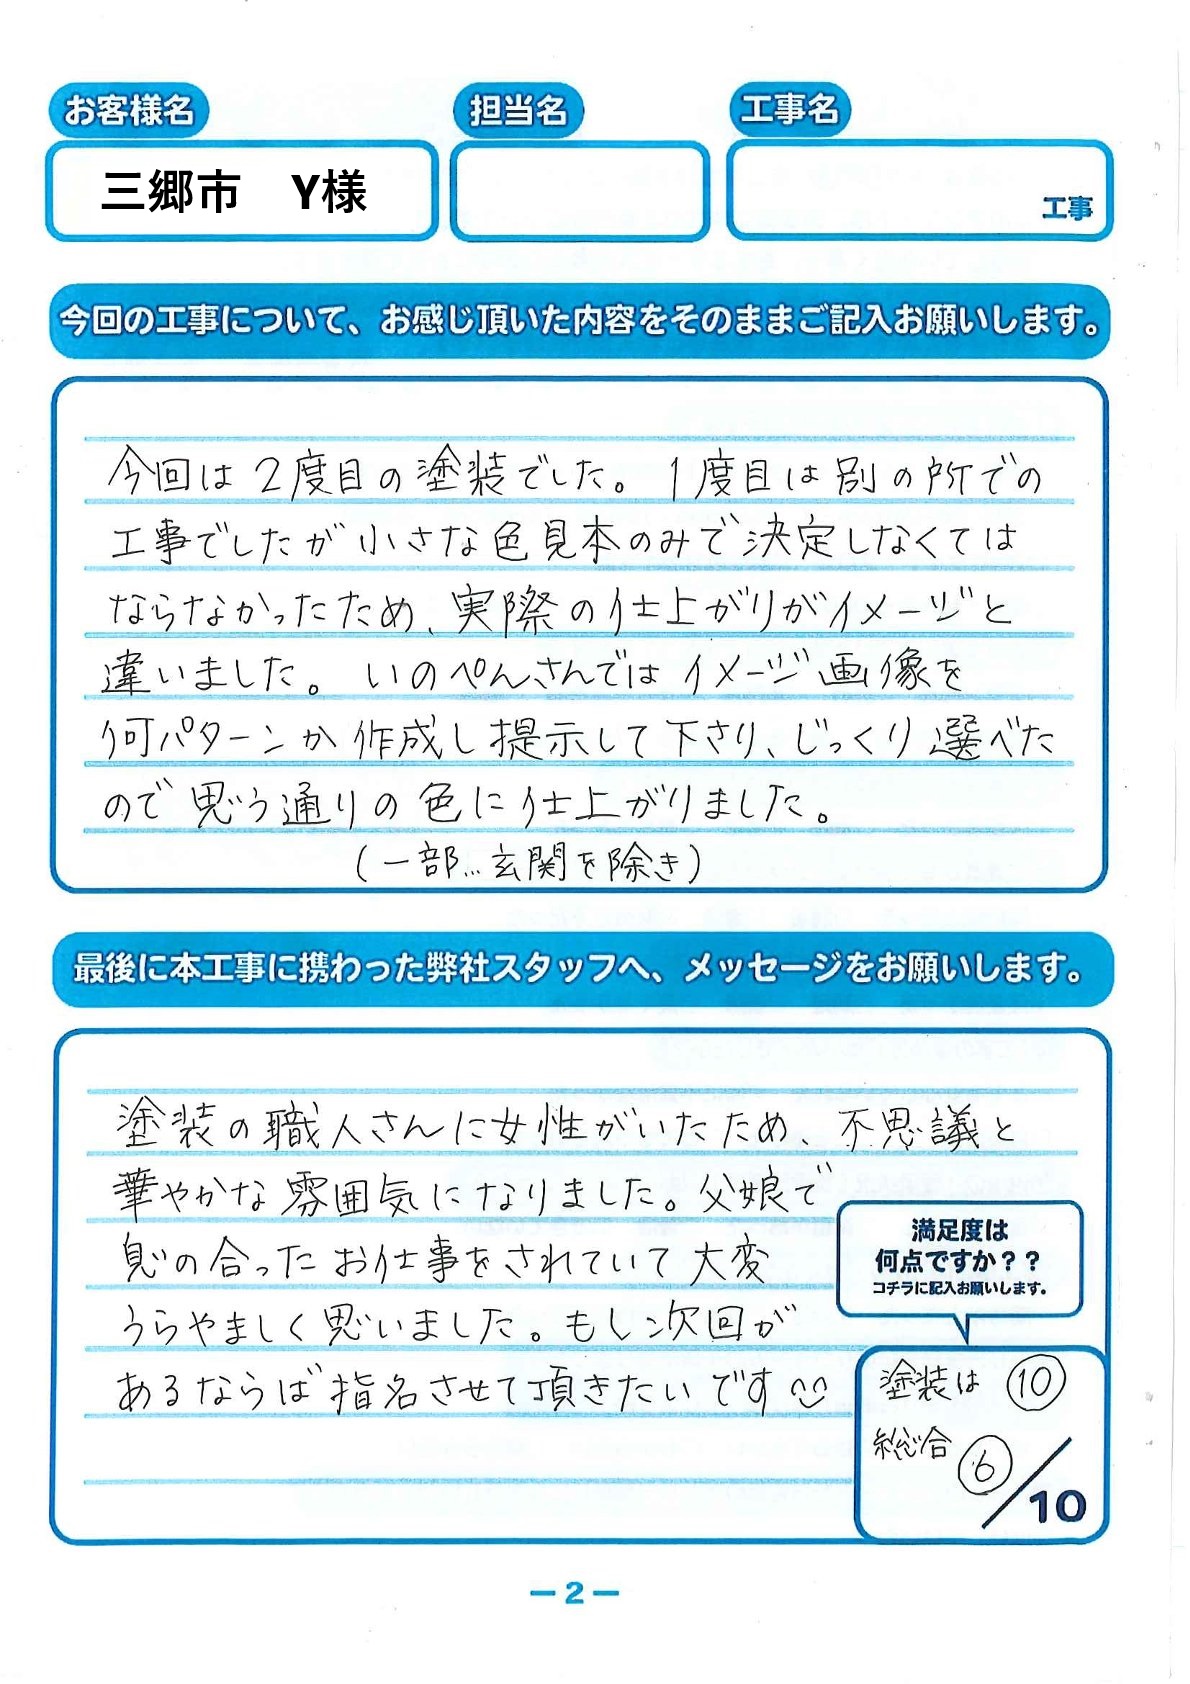 お客様名
担当名
工事名
三郷市　Y様
工事
今回の工事について、お感じ頂いた内容をそのままご記入お願いします。
今回は2度目の塗装でした。1度目は別の所での
工事でしたが小さな色見本のみで決定しなくては
ならなかったため、実際の仕上がりがイメージと
違いました。いのぺんさんではイメージ画像を
何パターンか作成し提示して下さり、じっくり選べた
ので思う通りの色に仕上がりました。
(一部…玄関を除き)
最後に本工事に携わった弊社スタッフへ、メッセージをお願いします。
塗装の職人さんに女性がいたため、不思議と
華やかな雰囲気になりました。父娘で
息の合ったお仕事をされていて大変
うらやましく思いました。もし次回が
あるならば指名させて頂きたいです
満足度は
何点ですか？？
コチラに記入お願いします。
塗装は ⑩
総合 ⑥/10
－2－